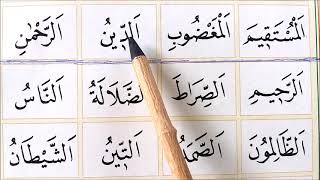 اَلْمُسْتَقِيْمَ اَلْمَغْضُوْبِ اَلدِّيْنُ اَلرَّحْمٰنِ
اَلرَّحِيْمِ اَلصِّرَاطَ اَلضَّلَالَةُ اَلنَّاسُ
اَلظَّالِمُوْنَ اَلصَّمَدُ اَلتِّيْنُ اَلشَّيْطَانُ